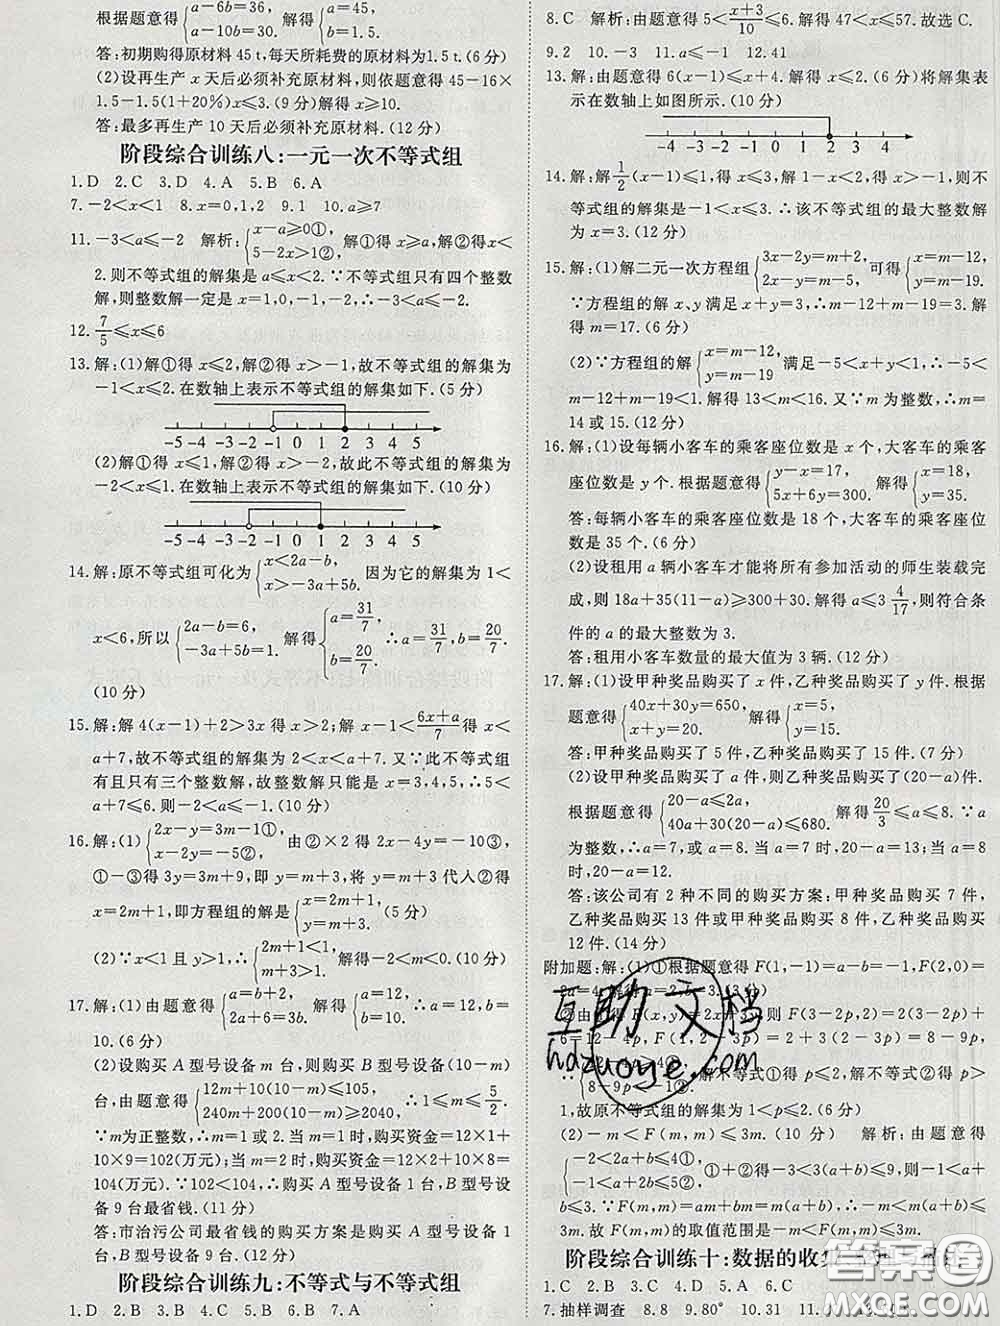 根据题意得{a-6b=36, a-10b=30. 解得{a=45, b=1.5.
答:初期购得原材料45 t,每天所耗费的原材料为1.5 t.(6分)
(2)设再生产 x 天后必须补充原材料,则依题意得 45-16×
1.5-1.5(1+20%)x≤3.(9分)解得 x≥10.
答:最多再生产 10 天后必须补充原材料.(12分)
阶段综合训练八:一元一次不等式组
1.D 2.C 3.D 4.A 5.B 6.A
7.-2<x<1 8.x=0,1,2 9.1 10.a≥7
11.-3<a≤-2 解析:{x-a≥0①, 5-2x>1②, 解①得 x≥a,解②得x<
2.则不等式组的解集是 a≤x<2.∵不等式组只有四个整数
解,则整数解一定是 x=1,0,-1,-2,∴-3<a≤-2.
12.7/5≤x≤6
13.解:(1)解①得 x≤2,解②得 x>-1,故不等式组的解集为
-1<x≤2.在数轴上表示不等式组的解集如下.(5分)
-5 -4 -3 -2 -1 0 1 2 3 4 5
(2)解①得 x≤1,解②得 x>-2,故此不等式组的解集为
-2<x≤1.在数轴上表示不等式组的解集如下.(10分)
-5 -4 -3 -2 -1 0 1 2 3 4 5
14.解:原不等式组可化为{x<2a-b, x>-3a+5b. 因为它的解集为 1<
x<6,所以{2a-b=6, -3a+5b=1. 解得{a=31/7, b=20/7. ∴a=31/7,b=20/7.
(10分)
15.解:解 4(x-1)+2>3x 得 x>2;解 x-1<(6x+a)/7得 x<
a+7,故不等式组的解集为 2<x<a+7.又∵此不等式组
有且只有三个整数解,故整数解只能是 x=3,4,5,∴5<
a+7≤6.则-2<a≤-1.(10分)
16.解:(1){2x-y=3m-1①, x-2y=-5②, 由②×2 得 2x-4y=-10③,
①-③得 3y=3m+9,即 y=m+3,将 y=m+3 代入②得
x=2m+1,即方程组的解是{x=2m+1, y=m+3. (5分)
(2)∵x<1且 y>1,∴{2m+1<1, m+3>1. 解得-2<m<0.(10分)
17.解:(1)由题意得{a=b+2, 2a+6=3b. 解得{a=12, b=10. ∴a=12,b=
10.(6分)
(2)设购买 A 型号设备 m 台,则购买 B 型号设备(10-m)
台,由题意得{12m+10(10-m)≤105, 240m+200(10-m)≥2040, ∴1≤m≤5/2.
∵m为正整数,∴m=1或2.当 m=1时,购买资金=12×1+
10×9=102(万元);当 m=2时,购买资金=12×2+10×8=
104(万元).∵102<104,∴购买 A 型号设备 1 台,B 型号设
备 9 台最省钱.(11分)
答:市治污公司最省钱的购买方案是购买 A 型号设备 1
台,B 型号设备 9 台.(12分)
阶段综合训练九:不等式与不等式组
1.D 2.B 3.D 4.C 5.B 6.B 7.A
8.C 解析:由题意得 5<(x+3)/10≤6.解得 47<x≤57.故选 C.
9.2 10.-3 11.a≤-1 12.41
13.解:由题意得 6(x-1)≤x+4.解得 x≤2.(6分)将解集表
示在数轴上如图所示.(10分)
-4 -3 -2 -1 0 1 2 3 4
14.解:解1/2(x-1)≤1,得 x≤3,解 1-x<2,得 x>-1,则不
等式组的解集是-1<x≤3.∴该不等式组的最大整数解
为 x=3.(12分)
15.解:(1)解二元一次方程组{3x-2y=m+2, 2x-y=m-5, 可得{x=m-12, y=m-19.
∵方程组的解 x、y 满足 x+y=3,∴m-12+m-19=3.解
得 m=17.(6分)
(2)∵方程组的解{x=m-12, y=m-19 满足-5<x+y<1,∴-5<
m-12+m-19<1.解得 13<m<16.又∵m 为整数,∴m=
14 或 15.(12分)
16.解:(1)设每辆小客车的乘客座位数是 x 个,大客车的乘客
座位数是 y 个.根据题意得{y-x=17, 5x+6y=300. 解得{x=18, y=35.
答:每辆小客车的乘客座位数是 18 个,大客车的乘客座位
数是 35 个.(6分)
(2)设租用 a 辆小客车才能将所有参加活动的师生装载完
成,则 18a+35(11-a)≥300+30.解得 a≤3 4/17,则符合条
件的 a 的最大整数为 3.
答:租用小客车数量的最大值为 3 辆.(12分)
17.解:(1)设甲种奖品购买了 x 件,乙种奖品购买了 y 件.根据
题意得{40x+30y=650, x+y=20. 解得{x=5, y=15.
答:甲种奖品购买了 5 件,乙种奖品购买了 15 件.(7分)
(2)设甲种奖品购买了 a 件,则乙种奖品购买了(20-a)件.
根据题意得{20-a≤2a, 40a+30(20-a)≤680. 解得20/3≤a≤8.∵a
为整数,∴a=7,或 a=8.当 a=7 时,20-a=13;当 a=8
时,20-a=12.
答:该公司有 2 种不同的购买方案:甲种奖品购买 7 件,
乙种奖品购买 13 件或甲种奖品购买 8 件,乙种奖品购买
12 件.(14分)
附加题:解:(1)①根据题意得 F(1,-1)=a-b=-1,F(2,0)=
2a=4.解得 a=2,b=3.(3分)
②由 F(x,y)=2x+3y,则 F(3-2p,2)=
+6=12-4p,F(1,2-3p)=2+3(2-3p)=
8-9p<-1②. 解不等式①得 p≤2,解不等式②得 p>
1,故原不等式组的解集为 1<p≤2.(6分)
(2)-m<F(m,m)≤3m.(10分) 解析:由题意得
{-2<2a+b≤4①, -1<-a+2b≤5②, ①+②得-3<(a+b)≤9,则-1<a+
b≤3,∵F(m,m)=am+bm=m(a+b),∴-m<m(a+b)≤
3m.故 F(m,m)的取值范围是-m<F(m,m)≤3m.
阶段综合训练十:数据的收
1.C 2.B 3.D 4.B 5.A 6.C
7.抽样调查 8.8 9.80° 10.31
互助文档
hdzuoye.com
答案圈
MXQE.COM